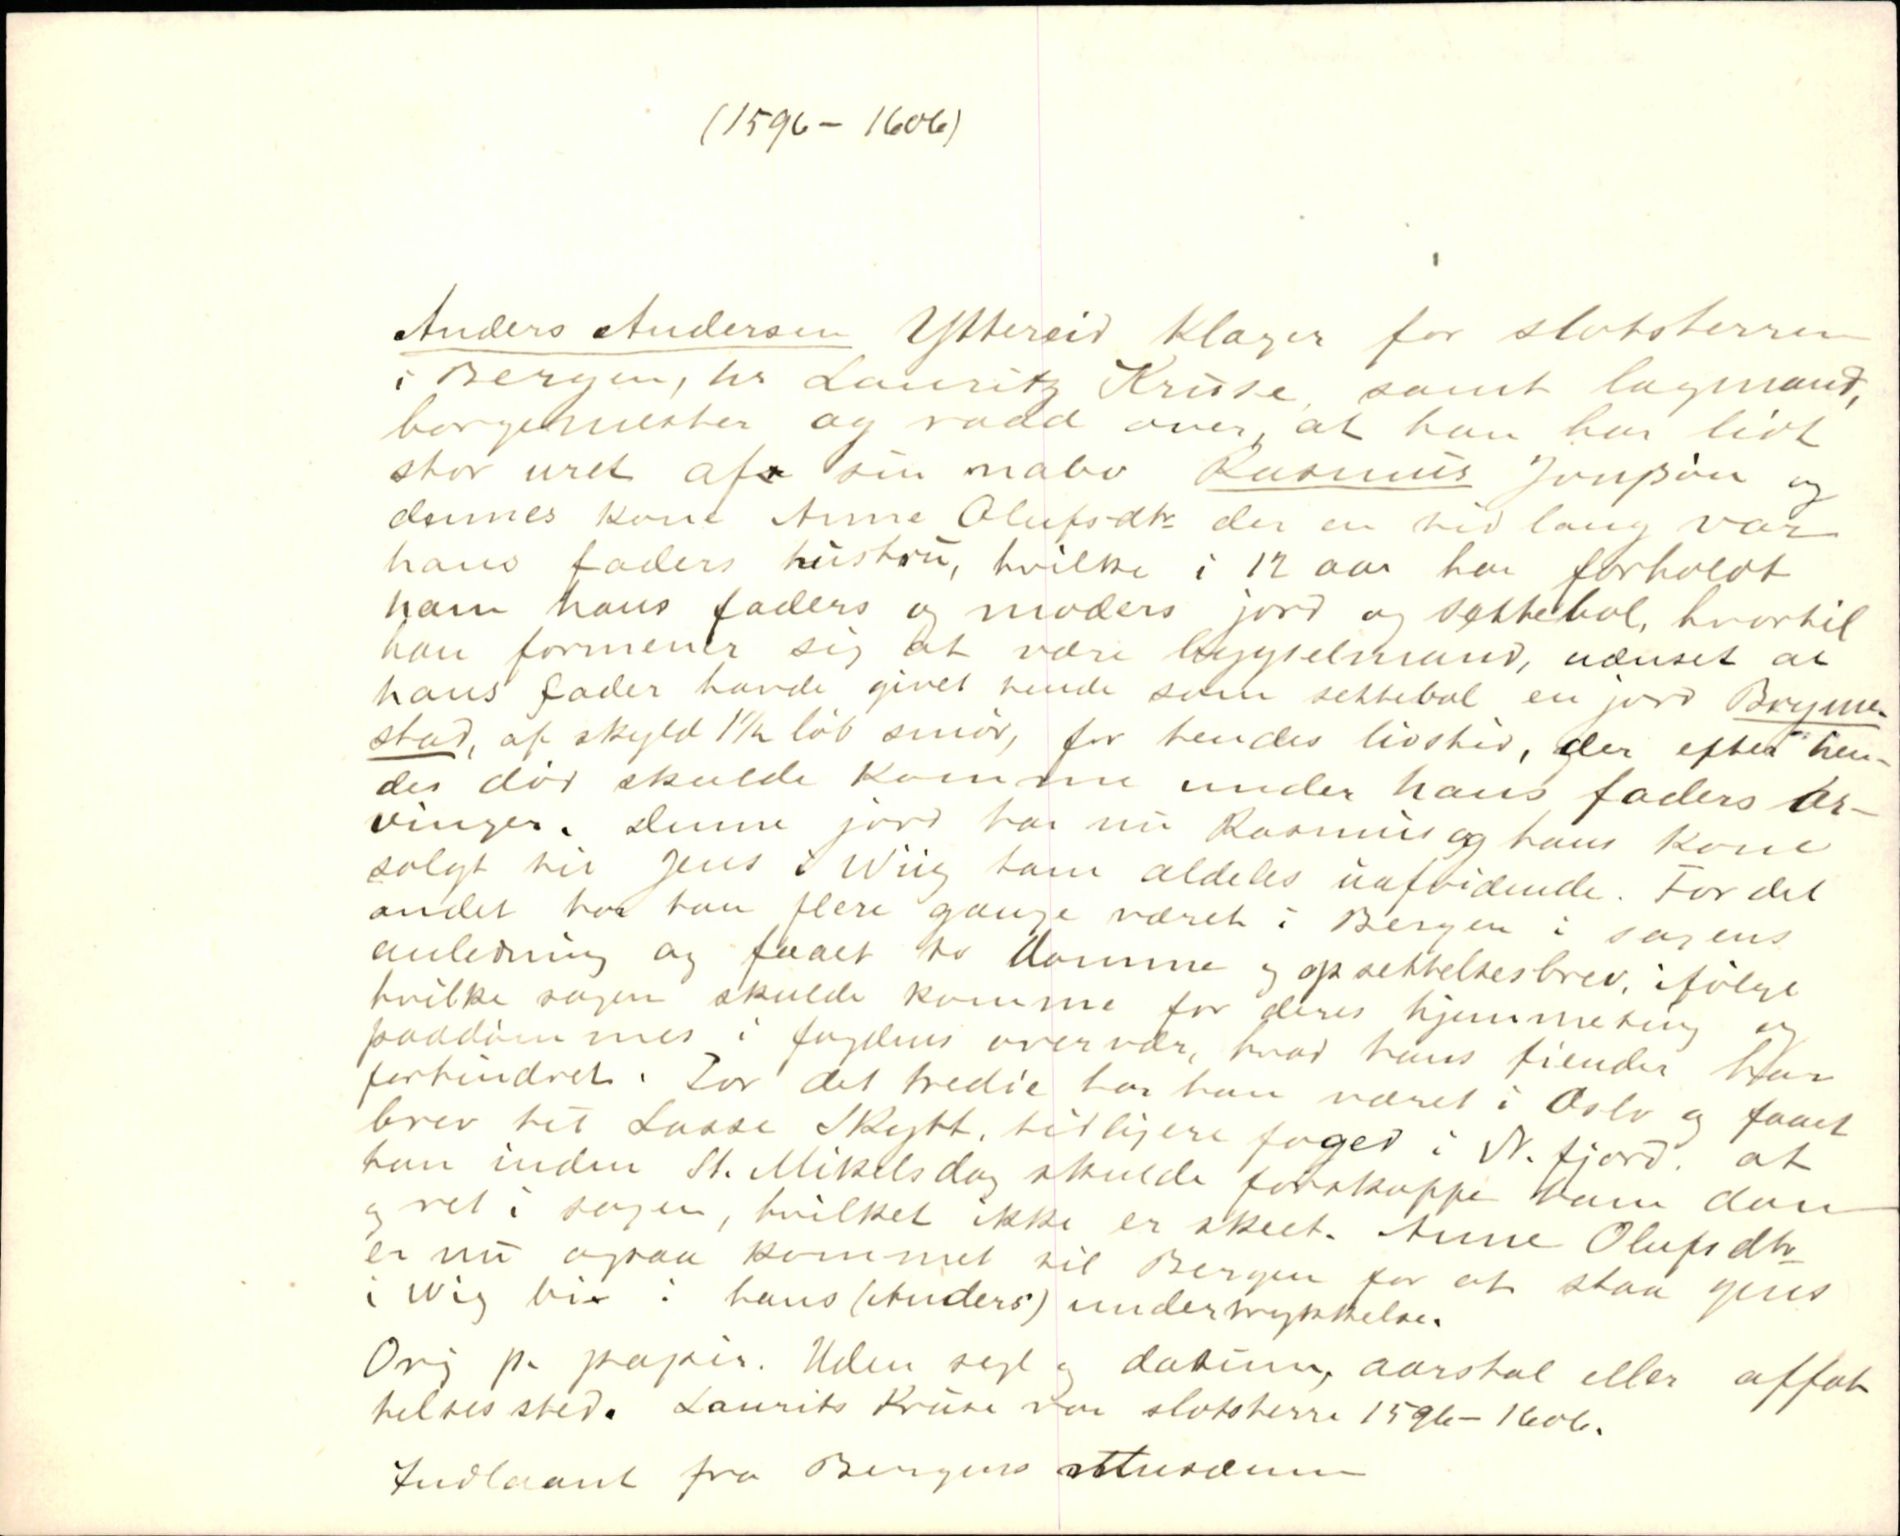 (1596 - 1606)
Anders Andersen Yttereid klager for slotsherren
i Bergen, hr Lauritz Kruse, samt lagmand,
borgemester og raad over, at han har lidt
stor uret af sin nabo Rasmus Jonßøn og
dennes kone Anne Olufsdtr der en tid lang var
hans faders hustru, hvilke i 12 aar har forholdt
ham hans faders og moders jord og settebol, hvortil
han formener sig at være bygselmand, uanset at
hans fader havde givet hende som settebol en jord Bryme-
stad, af skyld 1½ løb smør, for hendes livstid, der efter hen-
des død skulde komme under hans faders ar-
vinger. Denne jord har nu Rasmus og hans kone
solgt til Jens i Wiig ham aldeles uafvidende. For det
andet har han flere gange været i Bergen i sagens
anledning og faaet to domme og opsettelsesbrev, ifølge
hvilke sagen skulde komme for deres hjemmeting og
paadømmes i fogdens overvær, hvad hans fiender har
forhindret. For det tredie har han været i Oslo og faaet
brev til Lasse Skytt, tidligere foged i N. fjord, at
han inden St. Mikelsdag skulde forskappe ham dom
og ret i sagen, hvilket ikke er skeet. Anne Olufsdtr
er nu ogsaa kommet til Bergen for at staa Jens
i Wig bi i hans (Anders') undertrykkelse.
Orig p. papir. Uden segl og datum, aarstal eller affat
telses sted. Laurits Kruse var slotsherre 1596 - 1606.
Indlaant fra Bergens Musæum